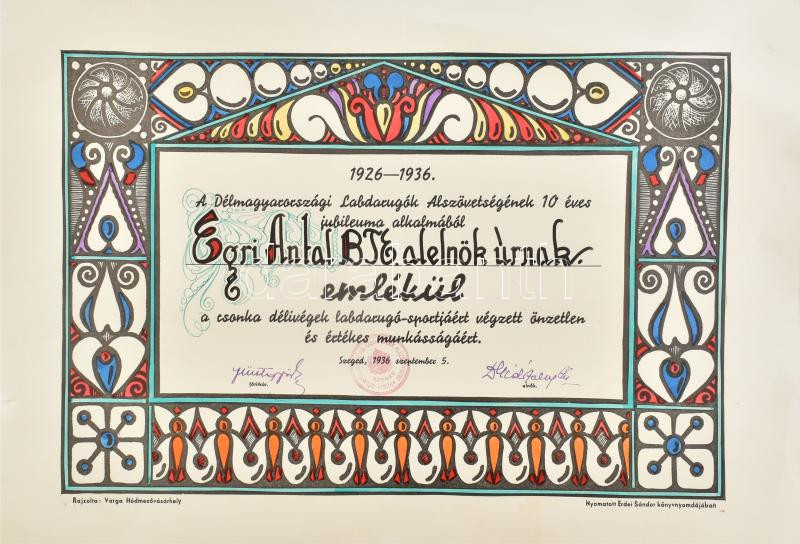 1926—1936.
A Délmagyarországi Labdarugók Alszövetségének 10 éves
jubileuma alkalmából
Egri Antal BTE alelnök úrnak.
emlékül
a csonka délivégek labdarugó-sportjáért végzett önzetlen
és értékes munkásságáért.
Szeged, 1936 szeptember 5.
főtitkár.
elnök.
Rajzolta: Varga Hódmezővásárhely
Nyomatott Erdei Sándor könyvnyomdájában